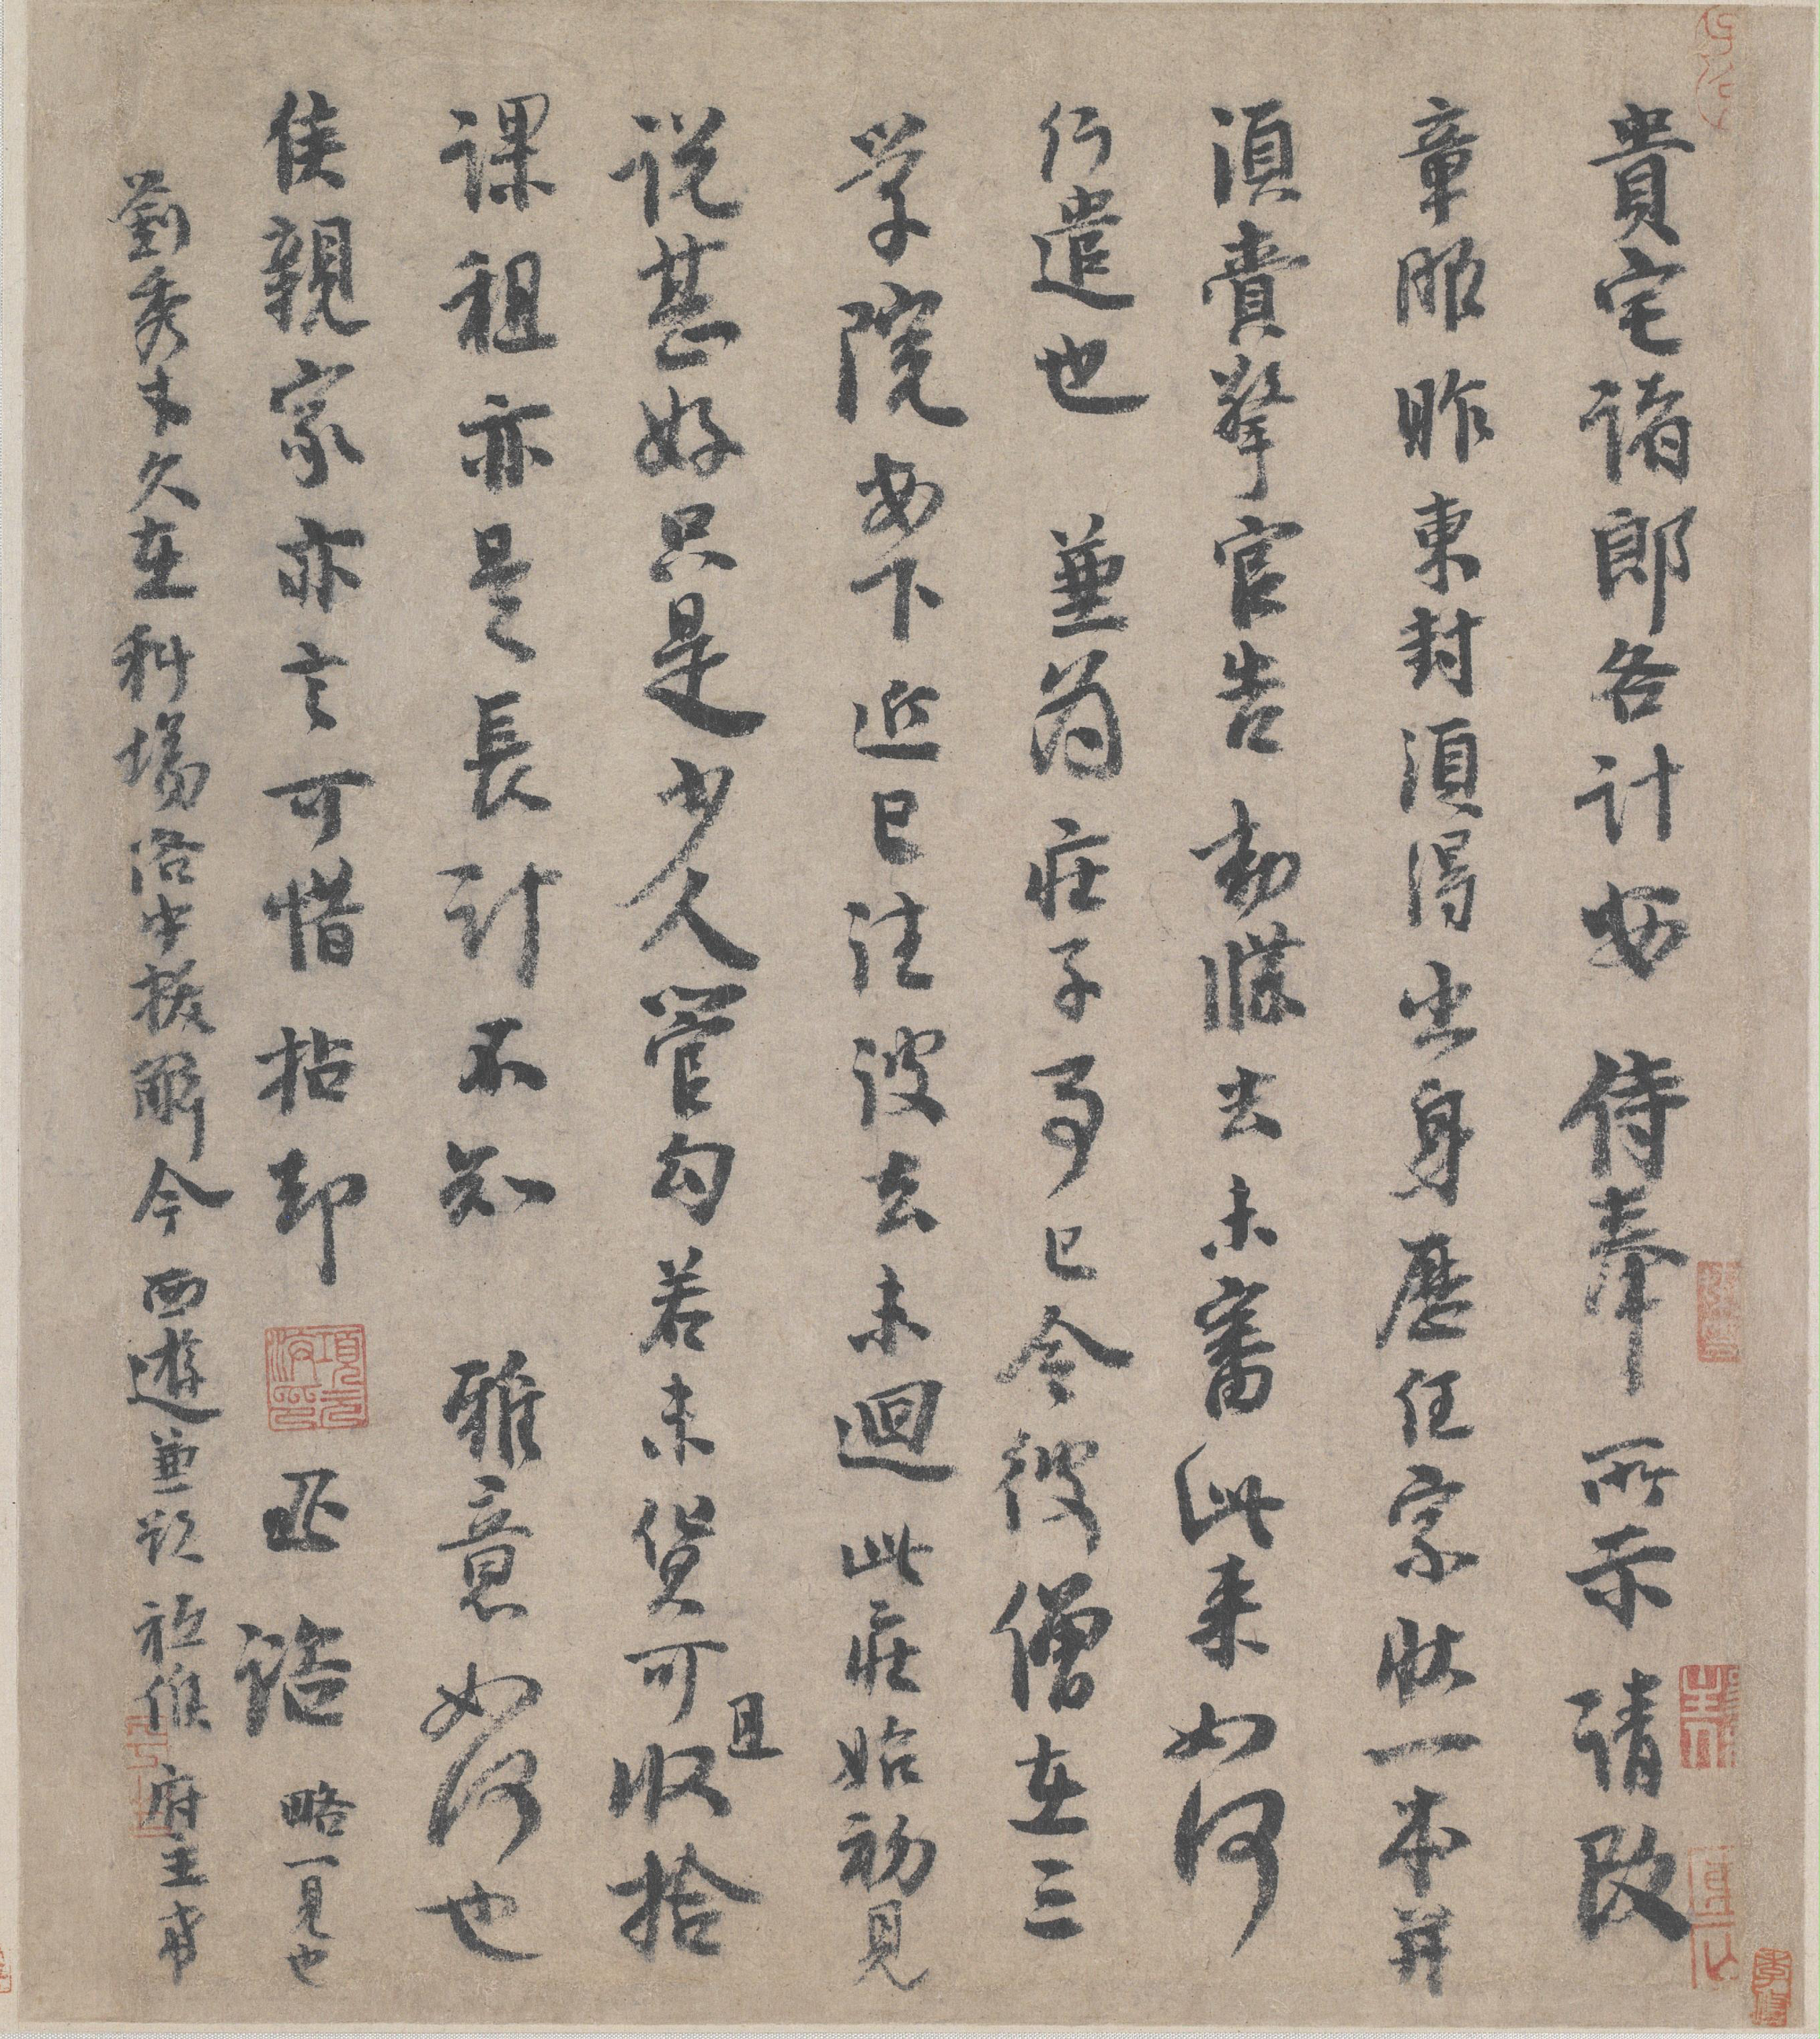 貴宅諸郎各計安 侍奉 所示 請改
章服昨東封須得出身歷任家狀一本并
須賷擎官告 勅牒去未審此来如何
行遣也 兼為庄子事已令彼僧在三
学院安下近已往彼去未迴此庄始初見
说甚好只是少人管勾若未貨可且收拾
課租亦是長計不知 雅意如何也
侯親家亦言可惜拈却 丕 諮 略一見也
劉秀才久在科場洛中拔解今西遊兼欲祗候 府主